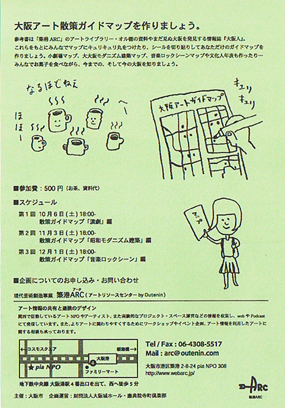 大阪アート散策ガイドマップを作りましょう。
参考書は「築港ARC」のアートライブラリー・オル棚の資料やまだ見ぬ大阪を発見する情報誌「大阪人」。
これらをもとにみんなでマップにキュリキュリ丸をつけたり、シールを切り貼りしてあなただけのガイドマップを
作りましょう。小劇場マップ、大大阪モダニズム建築マップ、音楽ロックシーンマップや文化人年表も作ったり…
みんなでお菓子を食べながら、今までの、そして今の大阪を知りましょう。
なるほどねえ
へー
ほほー
大阪アートガイドマップ
キュリ
キュリ
■参加費：500円（お茶、資料代）
■スケジュール
第1回 10月6日(土)18:00-
散策ガイドマップ「演劇」編
第2回 11月3日(土)18:00-
散策ガイドマップ「昭和モダニズム建築」編
第3回 12月1日(土)18:00-
散策ガイドマップ「音楽ロックシーン」編
マップ
■企画についてのお申し込み・お問い合わせ
現代芸術創造事業 築港ARC(アートリソースセンター by Outenin)
アーク
アート情報の共有と画期のデザイン
コスモスクエア
大阪港
朝潮橋
★pia NPO
ファミリーマート
地下鉄中央線 大阪港駅 4番出口を出て、西へ徒歩5分
Tel / Fax : 06-4308-5517
Mail : arc@outenin.com
大阪市港区築港 2-8-24 pia NPO 308
http://www.webarc.jp/
主催：大阪市 企画運営：財団法人大阪城ホール・應典院寺町倶楽部
ARC
築港ARC